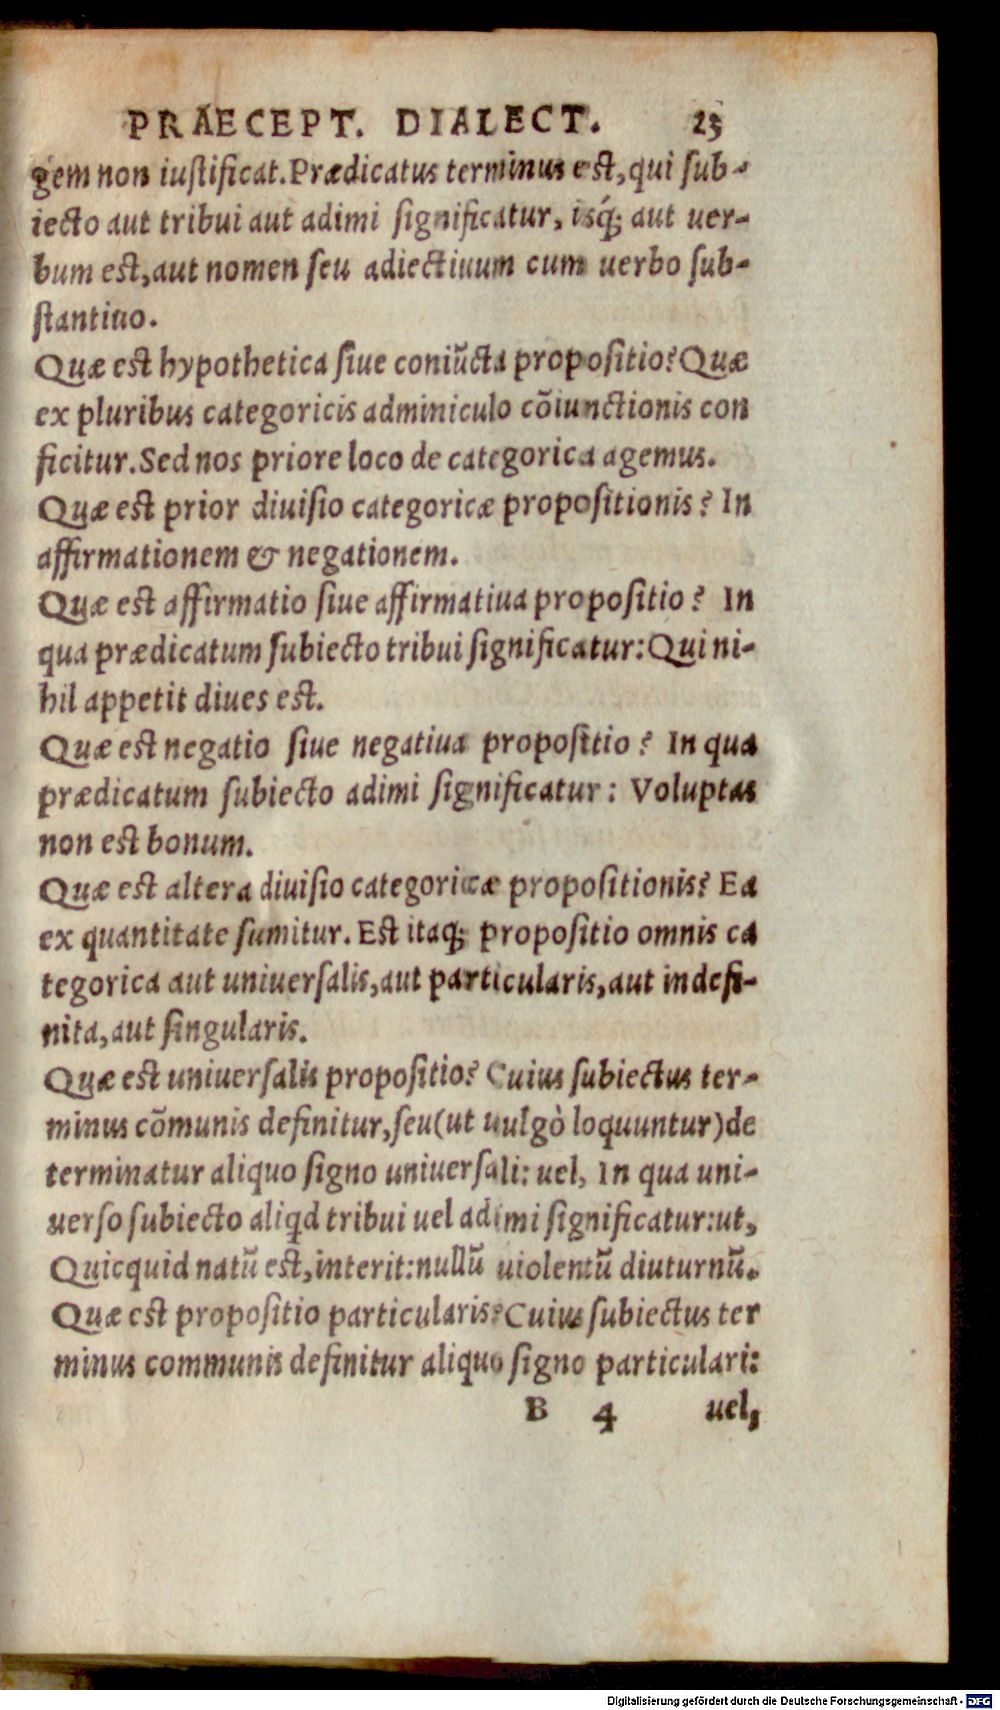 PRAECEPT. DIALECT. 23
gem non iustificat. Prædicatus terminus est, qui sub-
iecto aut tribui aut adimi significatur, isq́; aut uer-
bum est, aut nomen seu adiectiuum cum uerbo sub-
stantiuo.
Quæ est hypothetica siue coniũcta propositio? Quæ
ex pluribus categoricis adminiculo cõiunctionis con
ficitur. Sed nos priore loco de categorica agemus.
Quæ est prior diuisio categoricæ propositionis? In
affirmationem & negationem.
Quæ est affirmatio siue affirmatiua propositio? In
qua prædicatum subiecto tribui significatur: Qui ni-
hil appetit diues est.
Quæ est negatio siue negatiua propositio? In qua
prædicatum subiecto adimi significatur: Voluptas
non est bonum.
Quæ est altera diuisio categoricæ propositionis? Ea
ex quantitate sumitur. Est itaq; propositio omnis ca
tegorica aut uniuersalis, aut particularis, aut indefi-
nita, aut singularis.
Quæ est uniuersalis propositio? Cuius subiectus ter-
minus cõmunis definitur, seu (ut uulgò loquuntur) de
terminatur aliquo signo uniuersali: uel, In qua uni-
uerso subiecto aliqd tribui uel adimi significatur: ut,
Quicquid natũ est, interit: nullũ uiolentũ diuturnũ.
Quæ est propositio particularis? Cuius subiectus ter
minus communis definitur aliquo signo particulari:
B 4 uel,
Digitalisierung gefördert durch die Deutsche Forschungsgemeinschaft - DFG